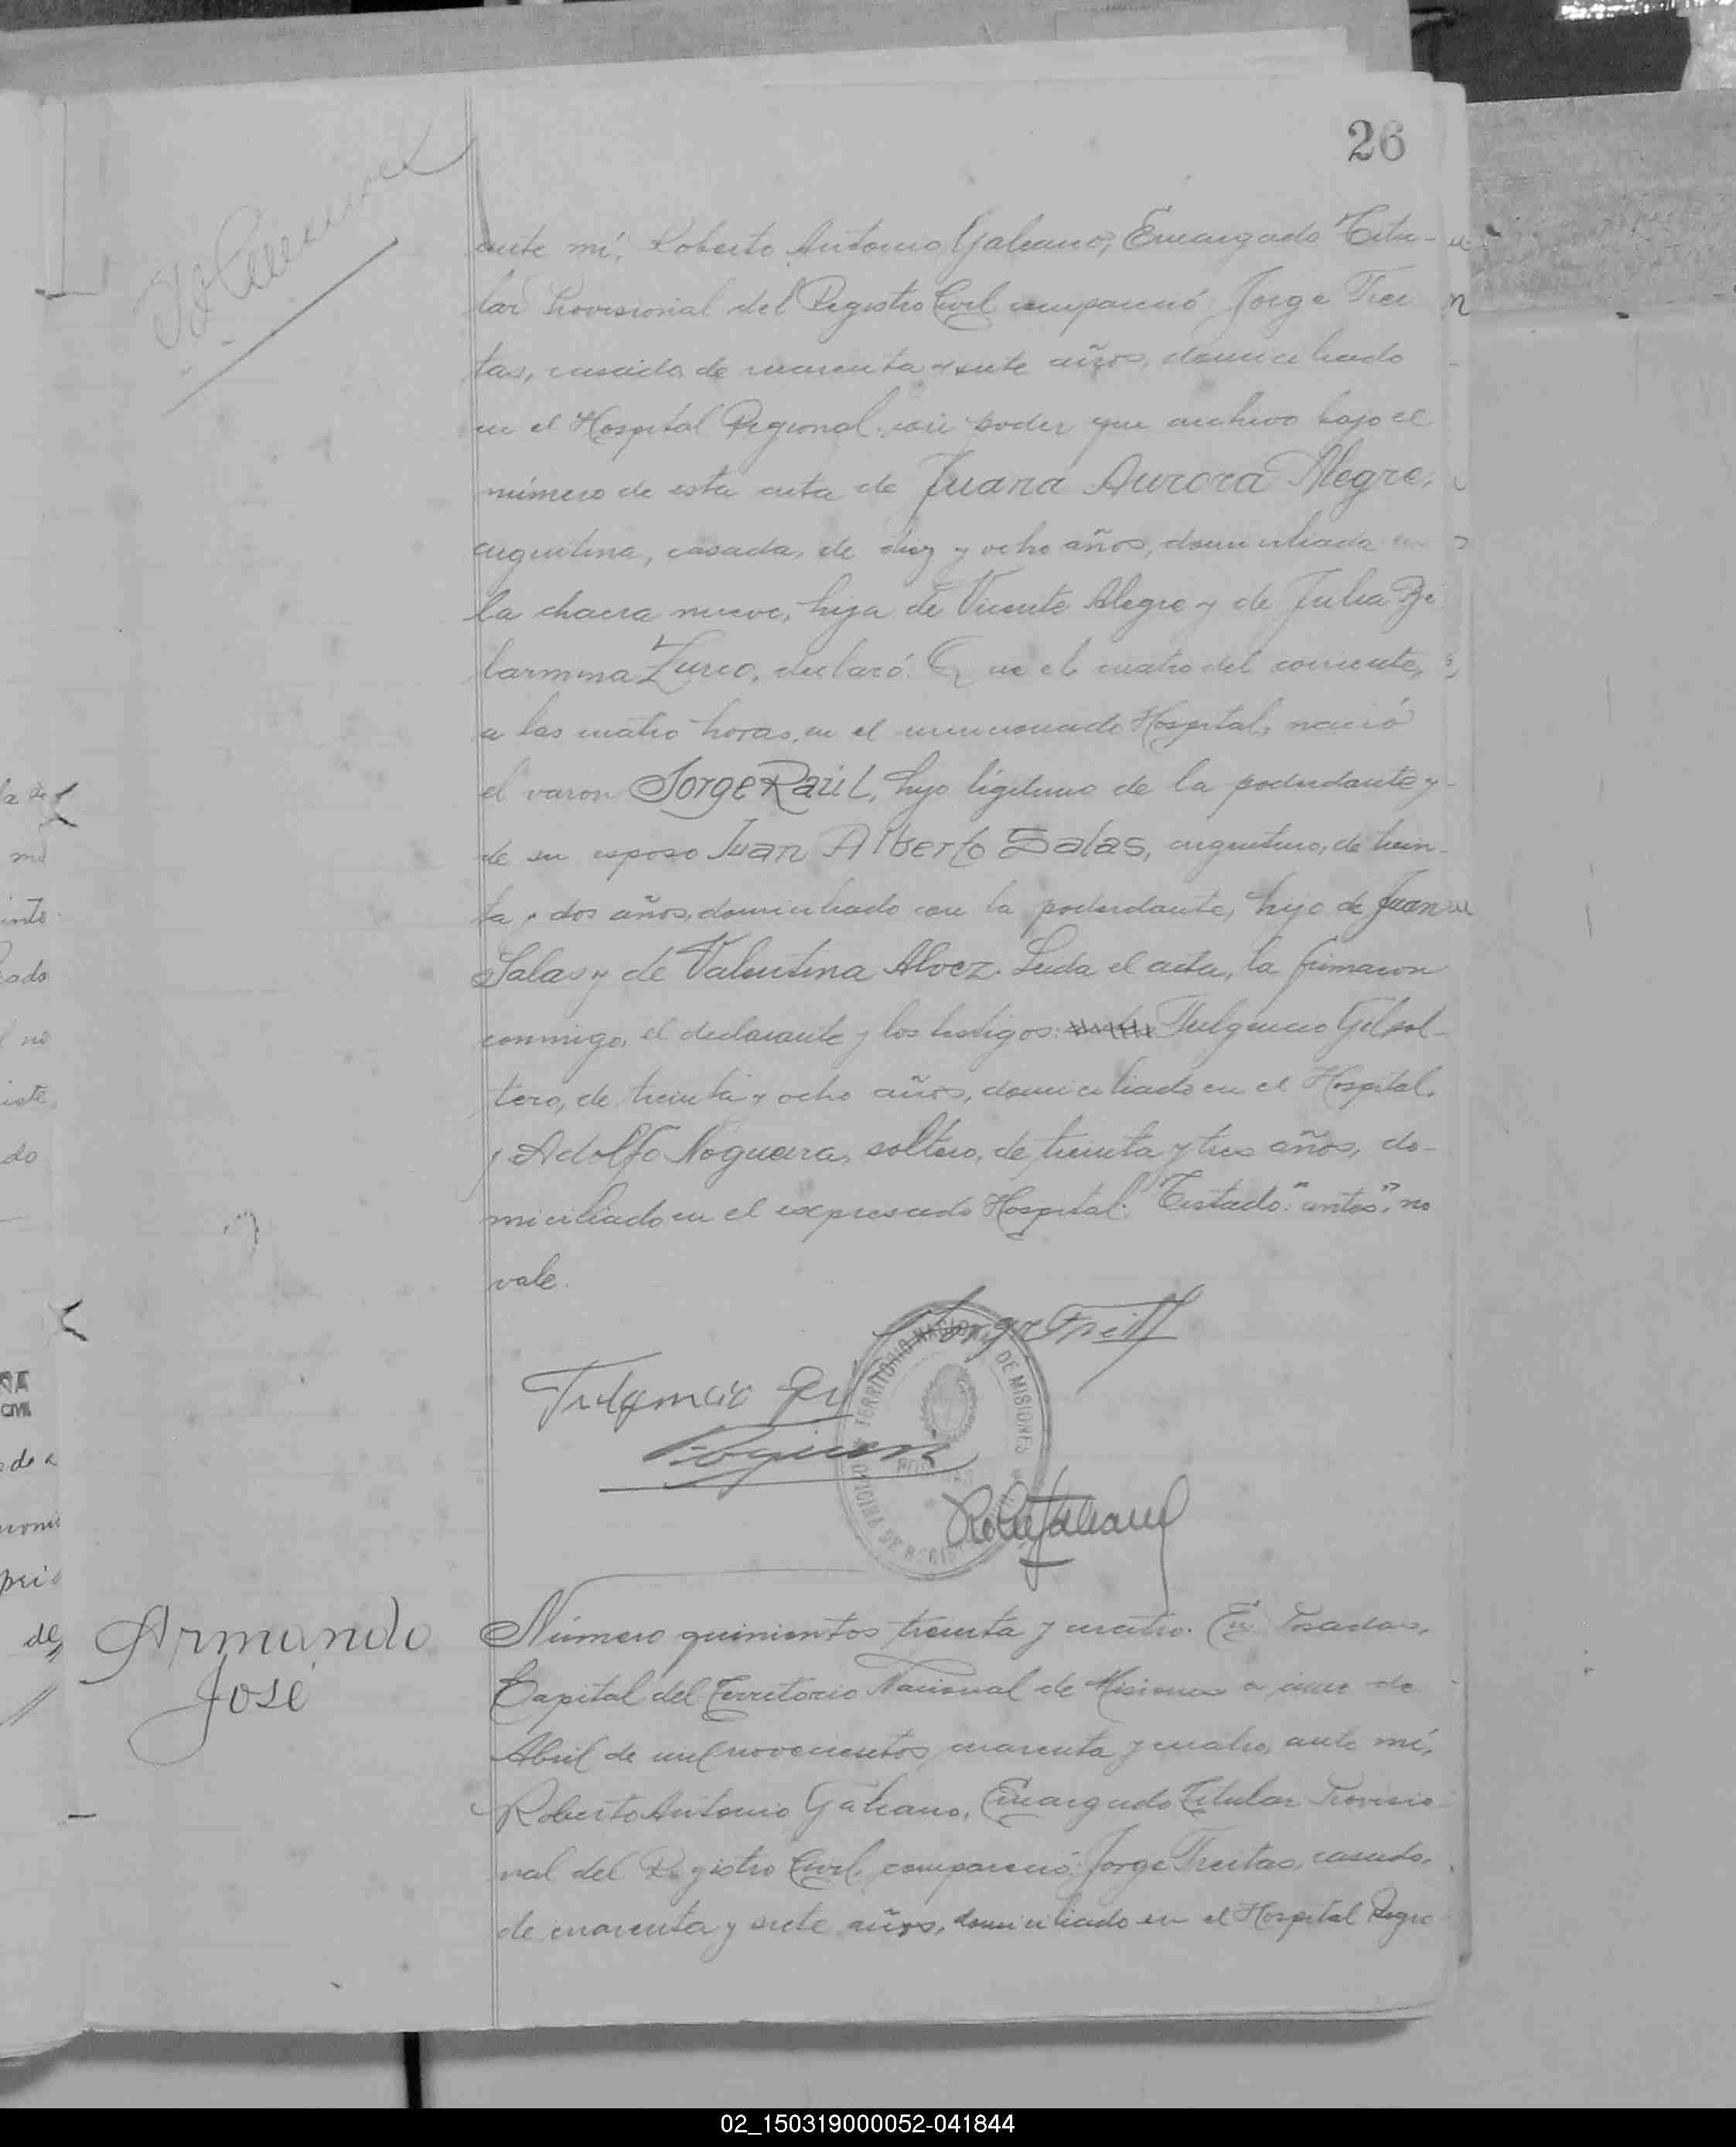 26
ante mí, Roberto Antonio Galeano, Encargado Titu-
lar Provisional del Registro Civil compareció Jorge Frei
tas, casado, de cuarenta y siete años, domiciliado
en el Hospital Regional con poder que archivo bajo el
número de esta acta de Juana Aurora Alegre,
argentina, casada, de diez y ocho años, domiciliada en
la chacra nueve, hija de Vicente Alegre y de Julia Be
larmina Zurco, declaró: Que el cuatro del corriente,
a las cuatro horas, en el mencionado Hospital, nació
el varon Jorge Raúl, hijo légitimo de la poderdante y
de su esposo Juan Alberto Salas, argentino, de trein-
ta y dos años, domiciliado con la poderdante, hijo de Juan
Salas y de Valentina Alvez. Leida el acta, la firmaron
conmigo, el declarante y los testigos: Fulgencio Gil, sol-
tero, de treinta y ocho años, domiciliado en el Hospital,
y Adolfo Noguera, soltero, de treinta y tres años, do-
miciliado en el expresado Hospital. Testado: "antes", no
vale.
Jorge Freitas
Fulgencio Gil
TERRITORIO NACIONAL DE MISIONES
POSADAS
OFICINA DE REGIS
Armando
José
Número quinientos treinta y cuatro. En Posadas,
Capital del Territorio Nacional de Misiones a once de
Abril de mil novecientos cuarenta y cuatro, ante mí,
Roberto Antonio Galeano, Encargado Titular Provisio
nal del Registro Civil, compareció: Jorge Freitas, casado,
de cuarenta y siete años, domiciliado en el Hospital Regio
02_150319000052-041844